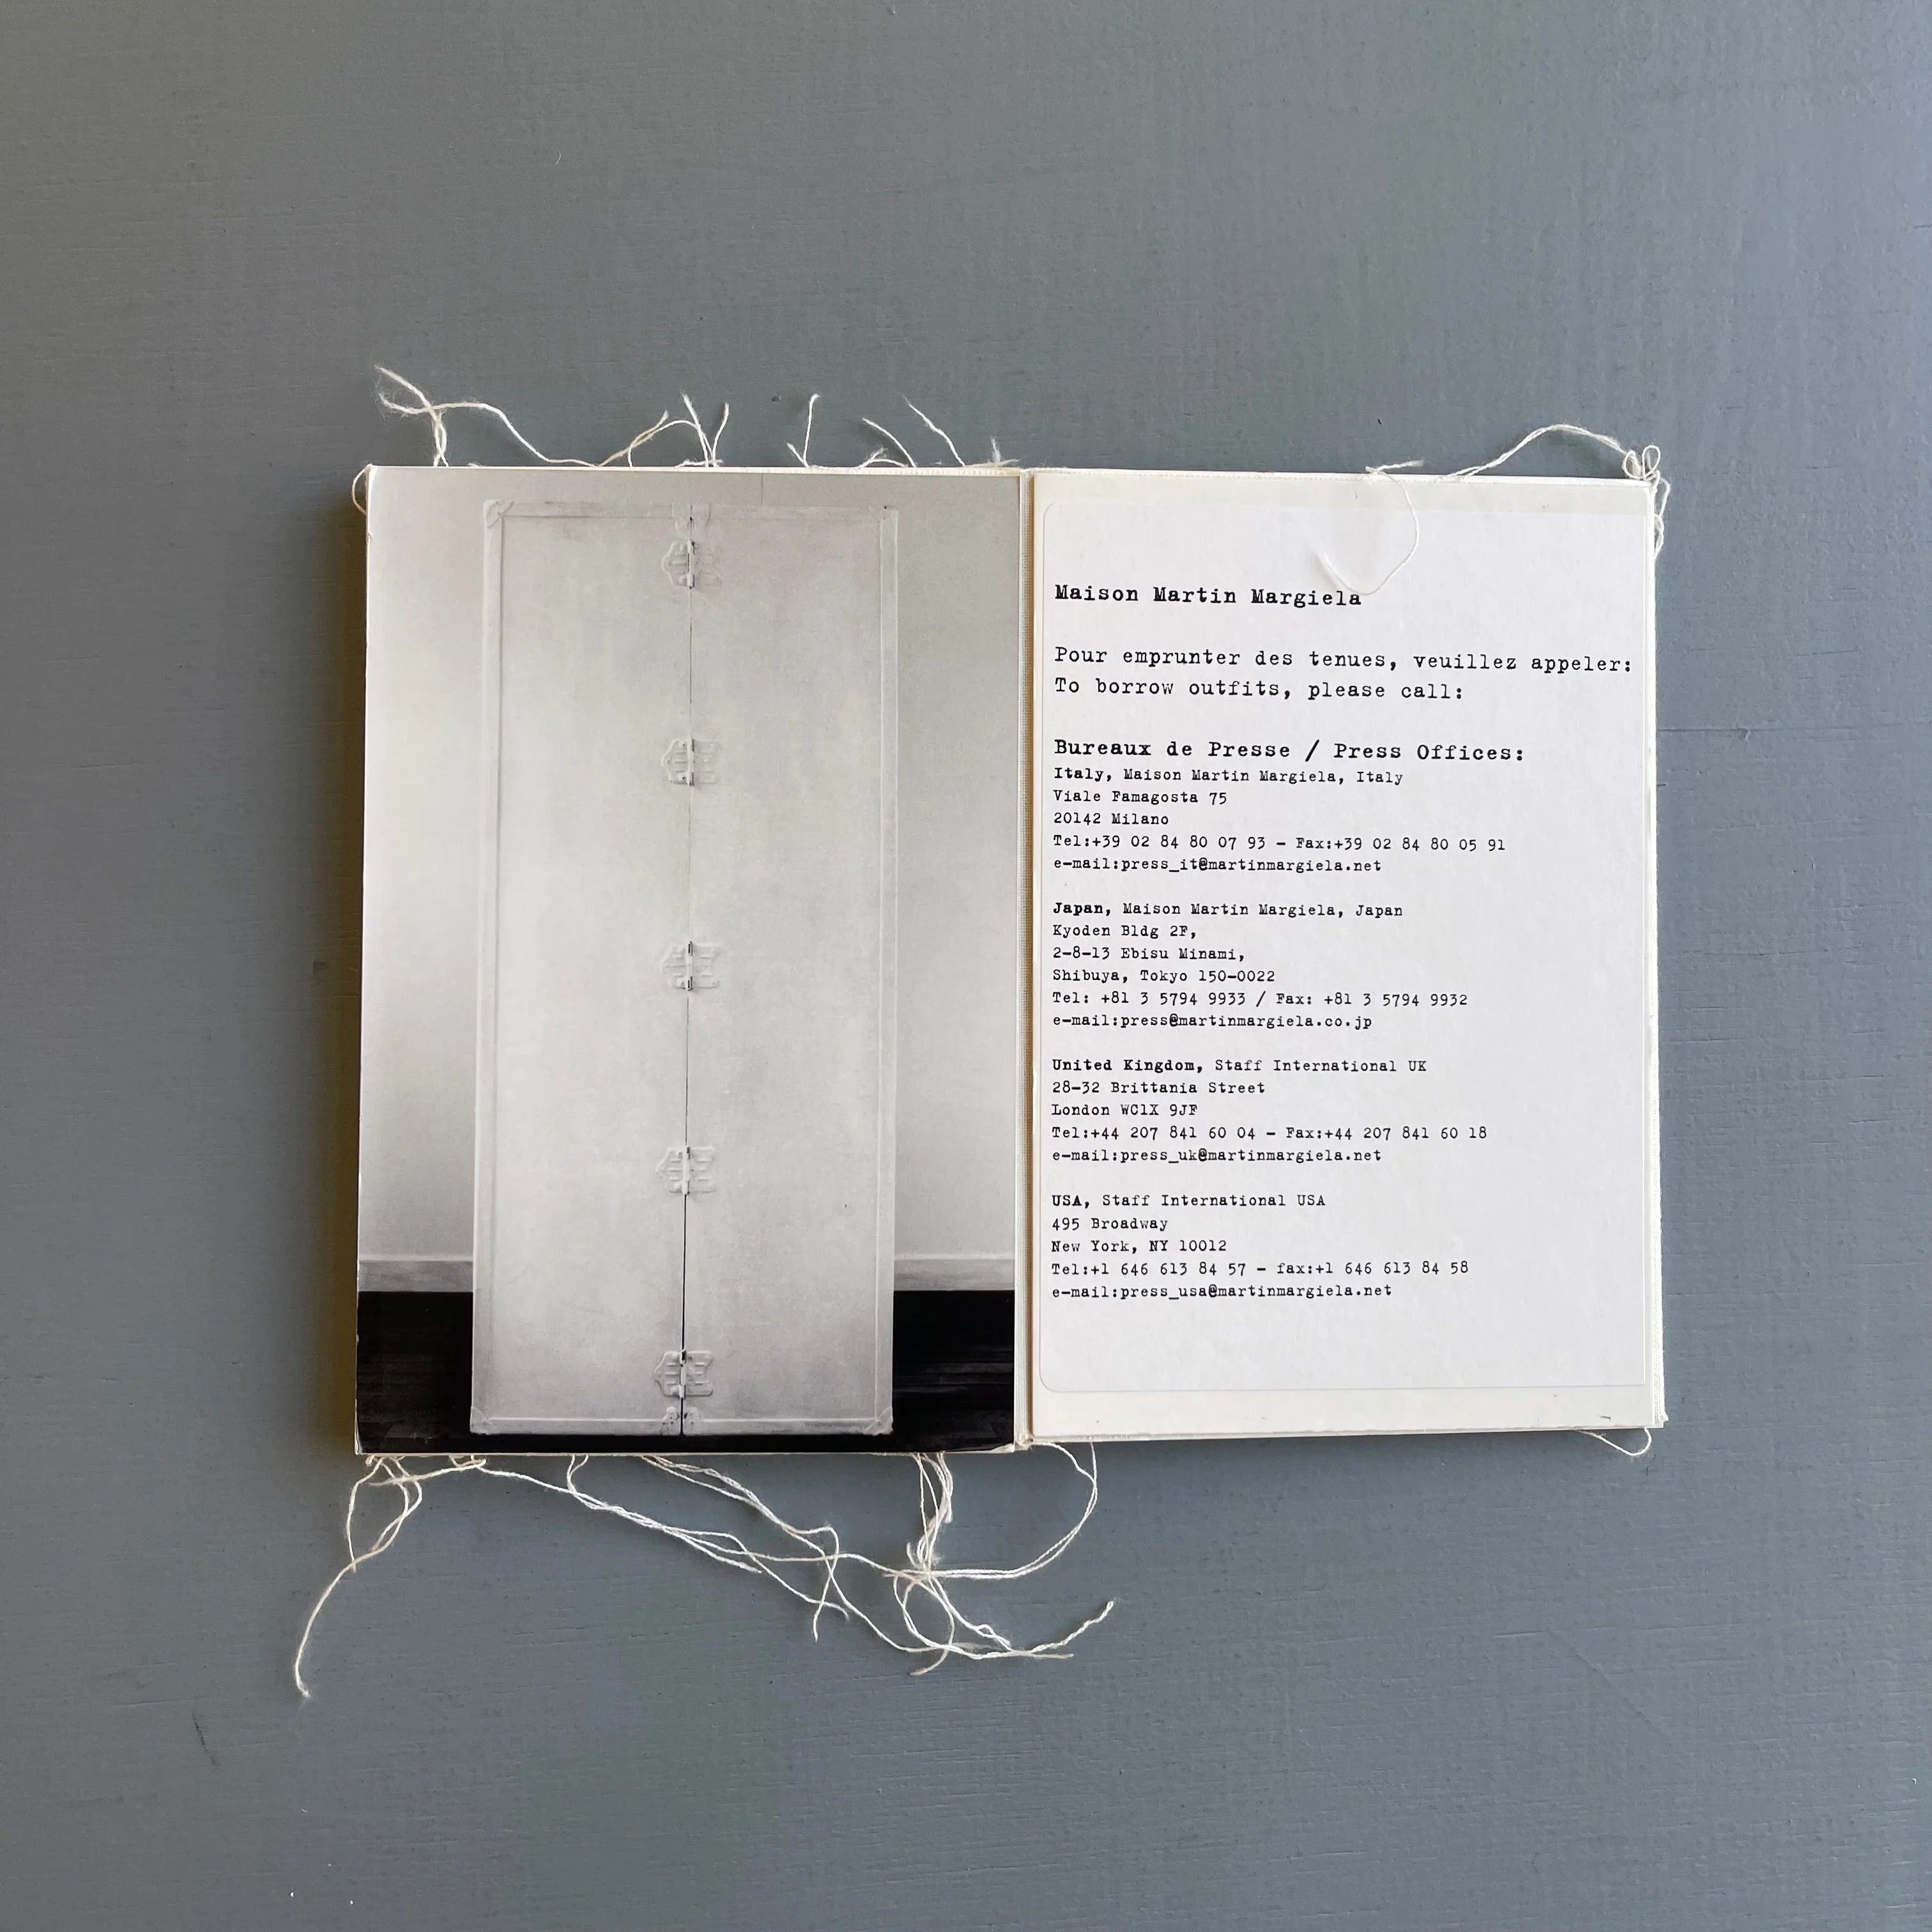 Maison Martin Margiela
Pour emprunter des tenues, veuillez appeler:
To borrow outfits, please call:
Bureaux de Presse / Press Offices:
Italy, Maison Martin Margiela, Italy
Viale Famagosta 75
20142 Milano
Tel:+39 02 84 80 07 93 - Fax:+39 02 84 80 05 91
e-mail:press_it@martinmargiela.net
Japan, Maison Martin Margiela, Japan
Kyoden Bldg 2F,
2-8-13 Ebisu Minami,
Shibuya, Tokyo 150-0022
Tel: +81 3 5794 9933 / Fax: +81 3 5794 9932
e-mail:press@martinmargiela.co.jp
United Kingdom, Staff International UK
28-32 Brittania Street
London WC1X 9JF
Tel:+44 207 841 60 04 - Fax:+44 207 841 60 18
e-mail:press_uk@martinmargiela.net
USA, Staff International USA
495 Broadway
New York, NY 10012
Tel:+1 646 613 84 57 - fax:+1 646 613 84 58
e-mail:press_usa@martinmargiela.net